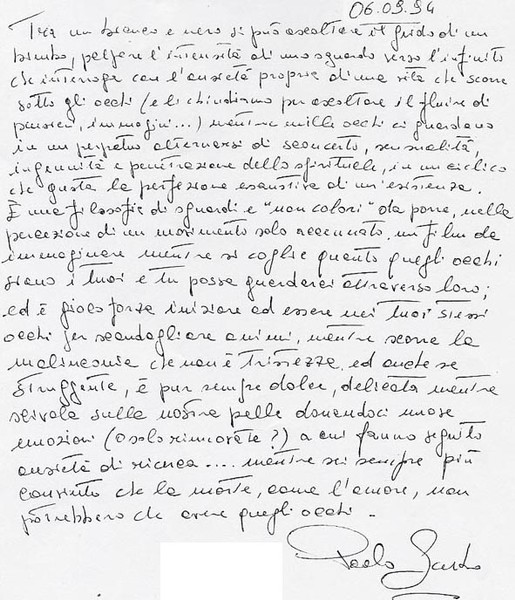 06.09.94
Tra un bianco e nero si può ascoltare il grido di un
bimbo, palpare l'intensità di uno sguardo verso l'infinito
che interroga con l'ansietà propria di una vita che scorre
sotto gli occhi (e li chiudiamo per ascoltare il fluire di
pensieri, immagini...) mentre mille occhi ci guardano
in un perpetuo alternarsi di sconcerto, sensualità,
ingenuità e penetrazione dello spirituale, in un ciclico
che gusta la perfezione esaustiva di un'esistenza.
È una filosofia di sguardi e "non colori" da porre, nella
percezione di un movimento solo accennato, un film da
immaginare mentre si coglie quanto quegli occhi
siano i tuoi e tu possa guardarci attraverso loro;
ed è gioco forza iniziare ad essere nei tuoi stessi
occhi per scandagliare animi, mentre scorre la
malinconia che non è tristezza, ed anche se
struggente, è pur sempre dolce, delicata mentre
scivola sulla nostra pelle donandoci
emozioni (o solo rimorate?) a cui fanno seguito
ansietà di ricerca .... mentre sei sempre più
convinto che la morte, come l'amore, non
potrebbero che avere quegli occhi.
Paolo